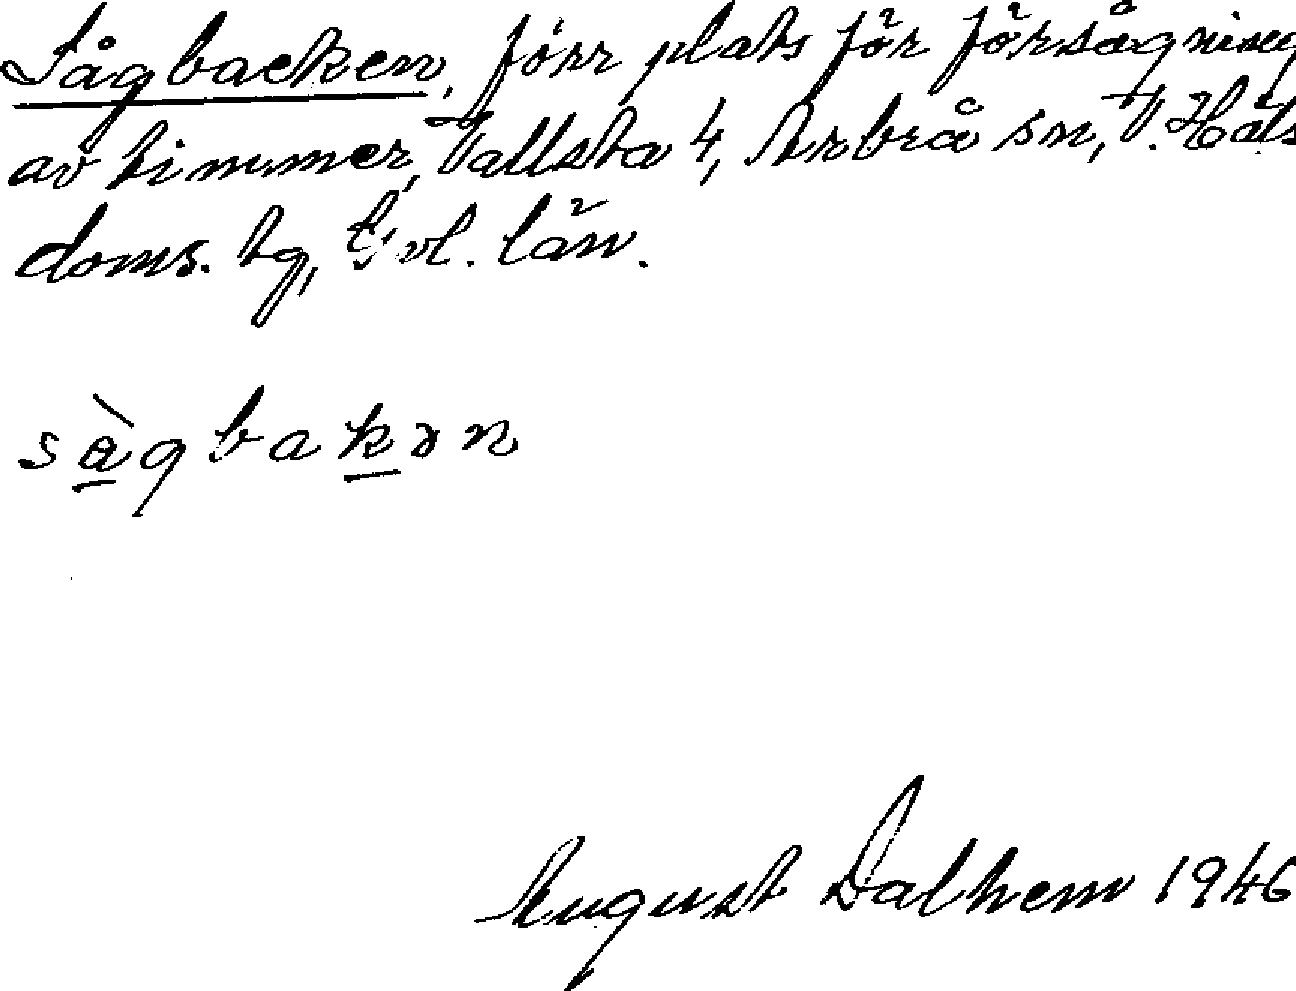 Sågbacken, förr plats för försågning
av timmer, Vallsta 4, Arbrå sn, V. Häls
doms. tg, Gvl. län.
såg bakən
August Dalhem 1946